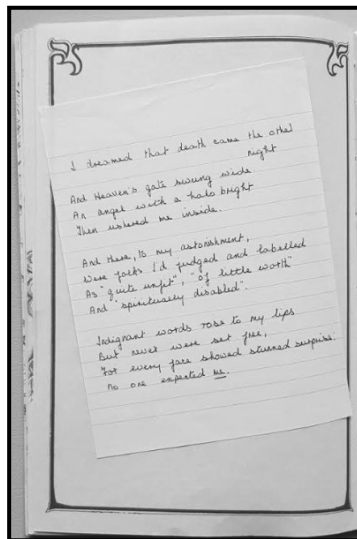 I dreamed that death came the other
night
And Heaven's gate swung wide
An angel with a halo bright
Then ushered me inside.
And there, to my astonishment,
Were folks I'd judged and labelled
As "quite unfit", "of little worth"
And "spiritually disabled".
Indignant words rose to my lips
But never were set free,
For every face showed stunned surprise
No one expected me.